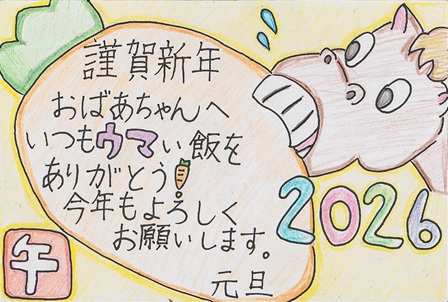 謹賀新年
おばあちゃんへ
いつもウマい飯を
ありがとう
今年もよろしく
お願いします。
元旦
2026
午